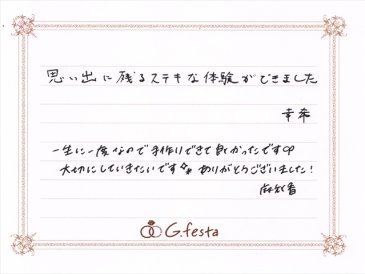 思い出に残るステキな体験ができました
幸希
一生に一度なので手作りできて良かったです♡
大切にしていきたいです✨ ありがとうございました！
麻知香
G.festa